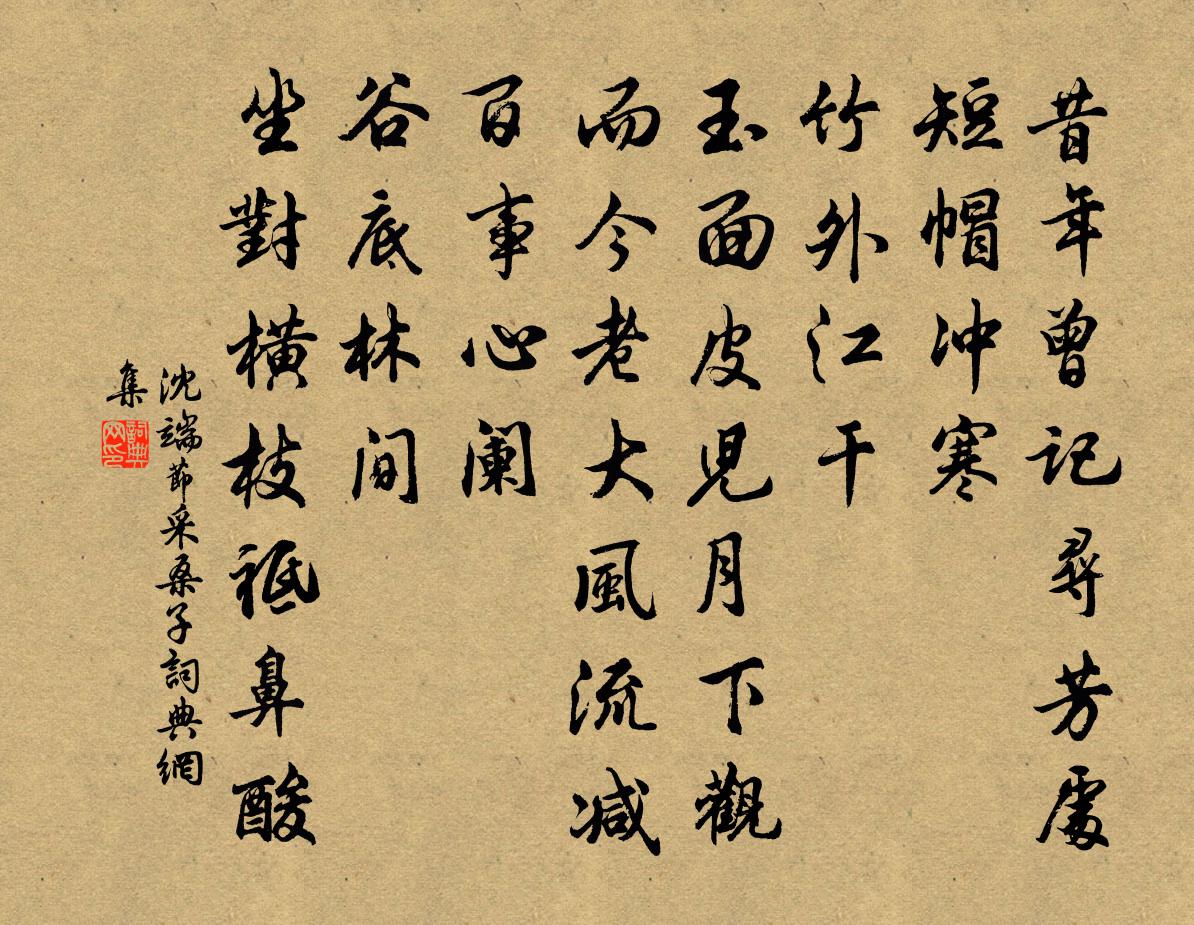 昔年曾記尋芳處
短帽冲寒
竹外江干
玉面皮兒月下觀
而今老大風流減
百事心闌
谷底林間
坐對橫枝祇鼻酸
沈端節采桑子詞典網
集
詞典網印